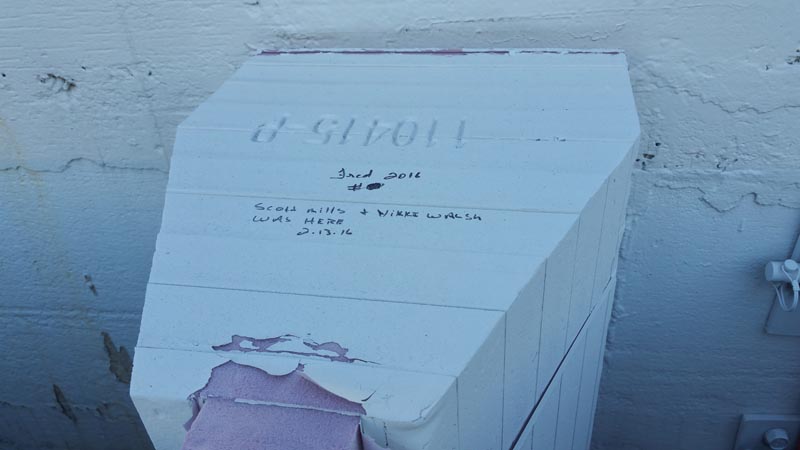 110415-R
Fred 2016
#
Scott Mills + Nikki Walsh
WAS HERE
2.13.16